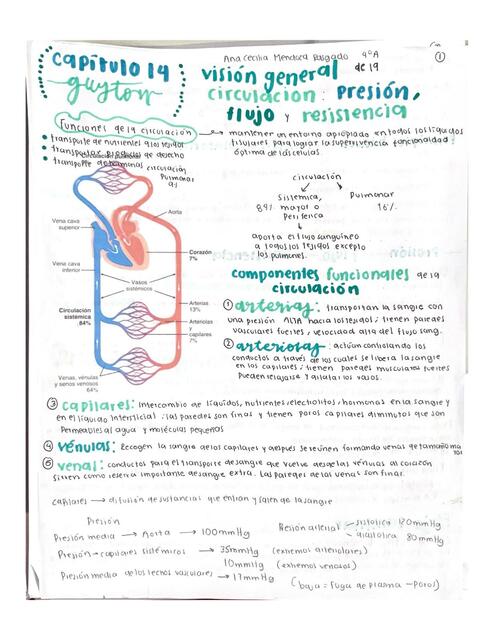 Capítulo 14
guyton
Ana Cecilia Mendoza
4°A
1
de 19
visión general
circulacion: presión,
flujo y resistencia
Funciones de la circulación
→ mantener en entorno apropiado en todos los líquidos
tisulares para lograr la supervivencia y funcionalidad
óptima de las células.
• transporte de nutrientes a los tejidos
• transportar productos de desecho
• transporte de hormonas
circulación
Pulmonar
9%
Circulación pulmonar
Aorta
Vena cava
superior
Vena cava
inferior
Corazón
7%
Vasos
sistémicos
Circulación
sistémica
84%
Arterias
13%
Arteriolas
y
capilares
7%
Venas, vénulas
y senos venosos
64%
circulación
Sistémica,
mayor o
Periférica
84%
Pulmonar
16%
aporta el flujo sanguíneo
a todos los tejidos excepto
los pulmones.
componentes funcionales de la
circulación
① arterias: transportan la sangre con
una presión ALTA hacia los tejidos; tienen paredes
vasculares fuertes, velocidad alta del flujo sang.
② arteriolas: actúan controlando los
conductos a través de los cuales se libera la sangre
en los capilares; tienen paredes musculares fuertes
Pueden relajarse y dilatar los vasos.
③ capilares: intercambio de líquidos, nutrientes, electrolitos, hormonas en la sangre y
en el líquido intersticial; las paredes son finas y tienen poros capilares diminutos que son
Permeables al agua y moléculas pequeñas
④ vénulas: Recogen la sangre de los capilares y después se reúnen formando venas de tamaño ma
yor
⑤ venas: conductos para el transporte de sangre que vuelve desde las vénulas al corazón
sirven como reserva importante de sangre extra. Las paredes de las venas son finas.
capilares → difusión de sustancias que entran y salen de la sangre
Presión
Presión media → Aorta → 100mmHg
Presión arterial
sistólica 120mmHg
diastólica 80mmHg
Presión → capilares sistémicos → 35mmHg (extremos arteriolares)
10mmHg (extremos venosos)
Presión media de los lechos vasculares → 17mmHg
(baja = fuga de plasma - poros)